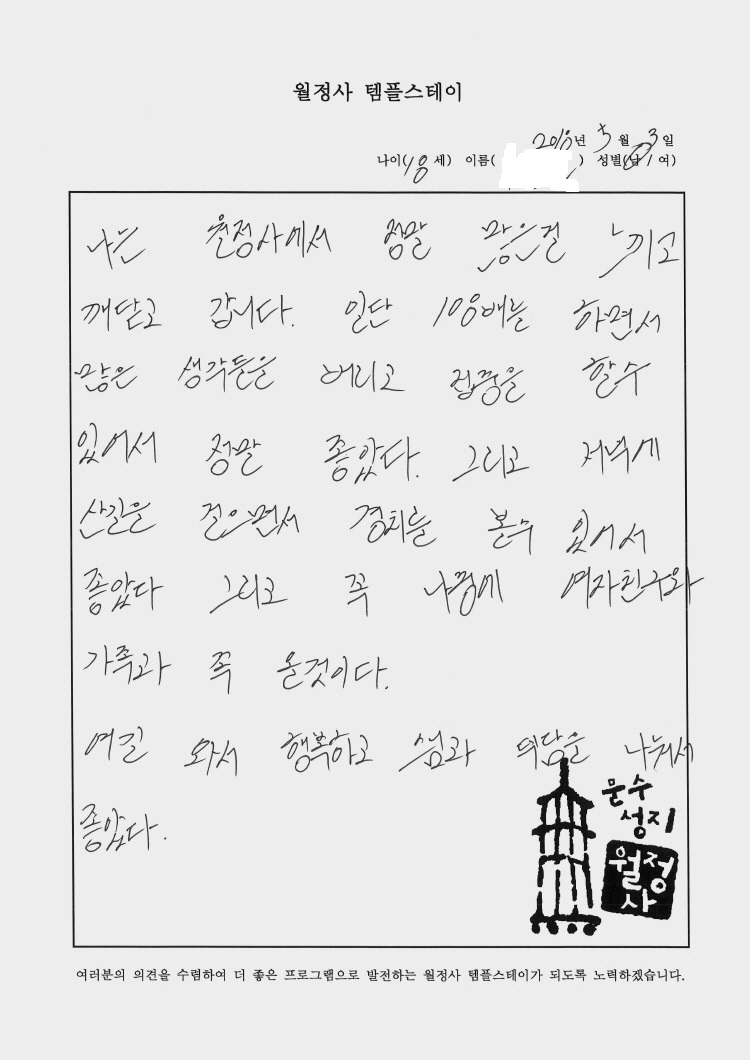 월정사 템플스테이
2018년 5월 3일
나이(18세) 이름( ) 성별(남/여)
나는 월정사에서 정말 많은걸 느끼고
깨닫고 갑니다. 일단 108배를 하면서
많은 생각들을 버리고 집중을 할수
있어서 정말 좋았다. 그리고 저녁에
산길을 걸으면서 경치를 볼수 있어서
좋았다 그리고 꼭 나중에 여자친구와
가족과 꼭 올것이다.
여길 와서 행복하고 스님과 덕담을 나눠서
좋았다.
문수
성지
월정
사
여러분의 의견을 수렴하여 더 좋은 프로그램으로 발전하는 월정사 템플스테이가 되도록 노력하겠습니다.